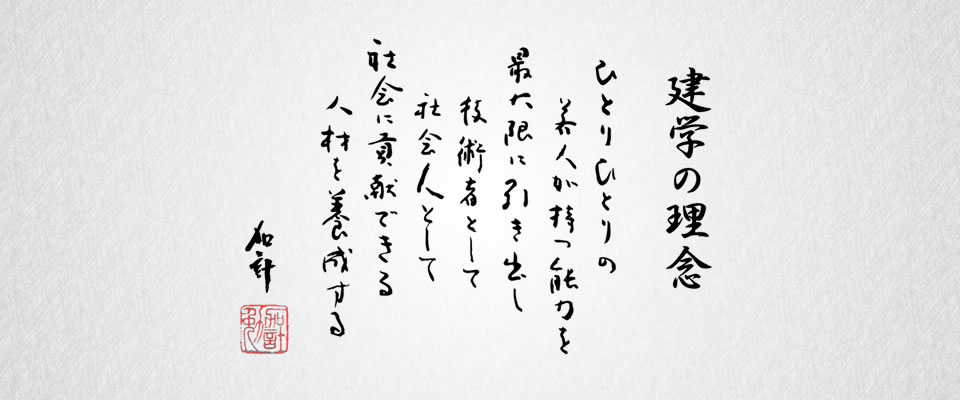 建学の理念
ひとりひとりの
若人が持つ能力を
最大限に引き出し
技術者として
社会人として
社会に貢献できる
人材を養成する
加計
加計